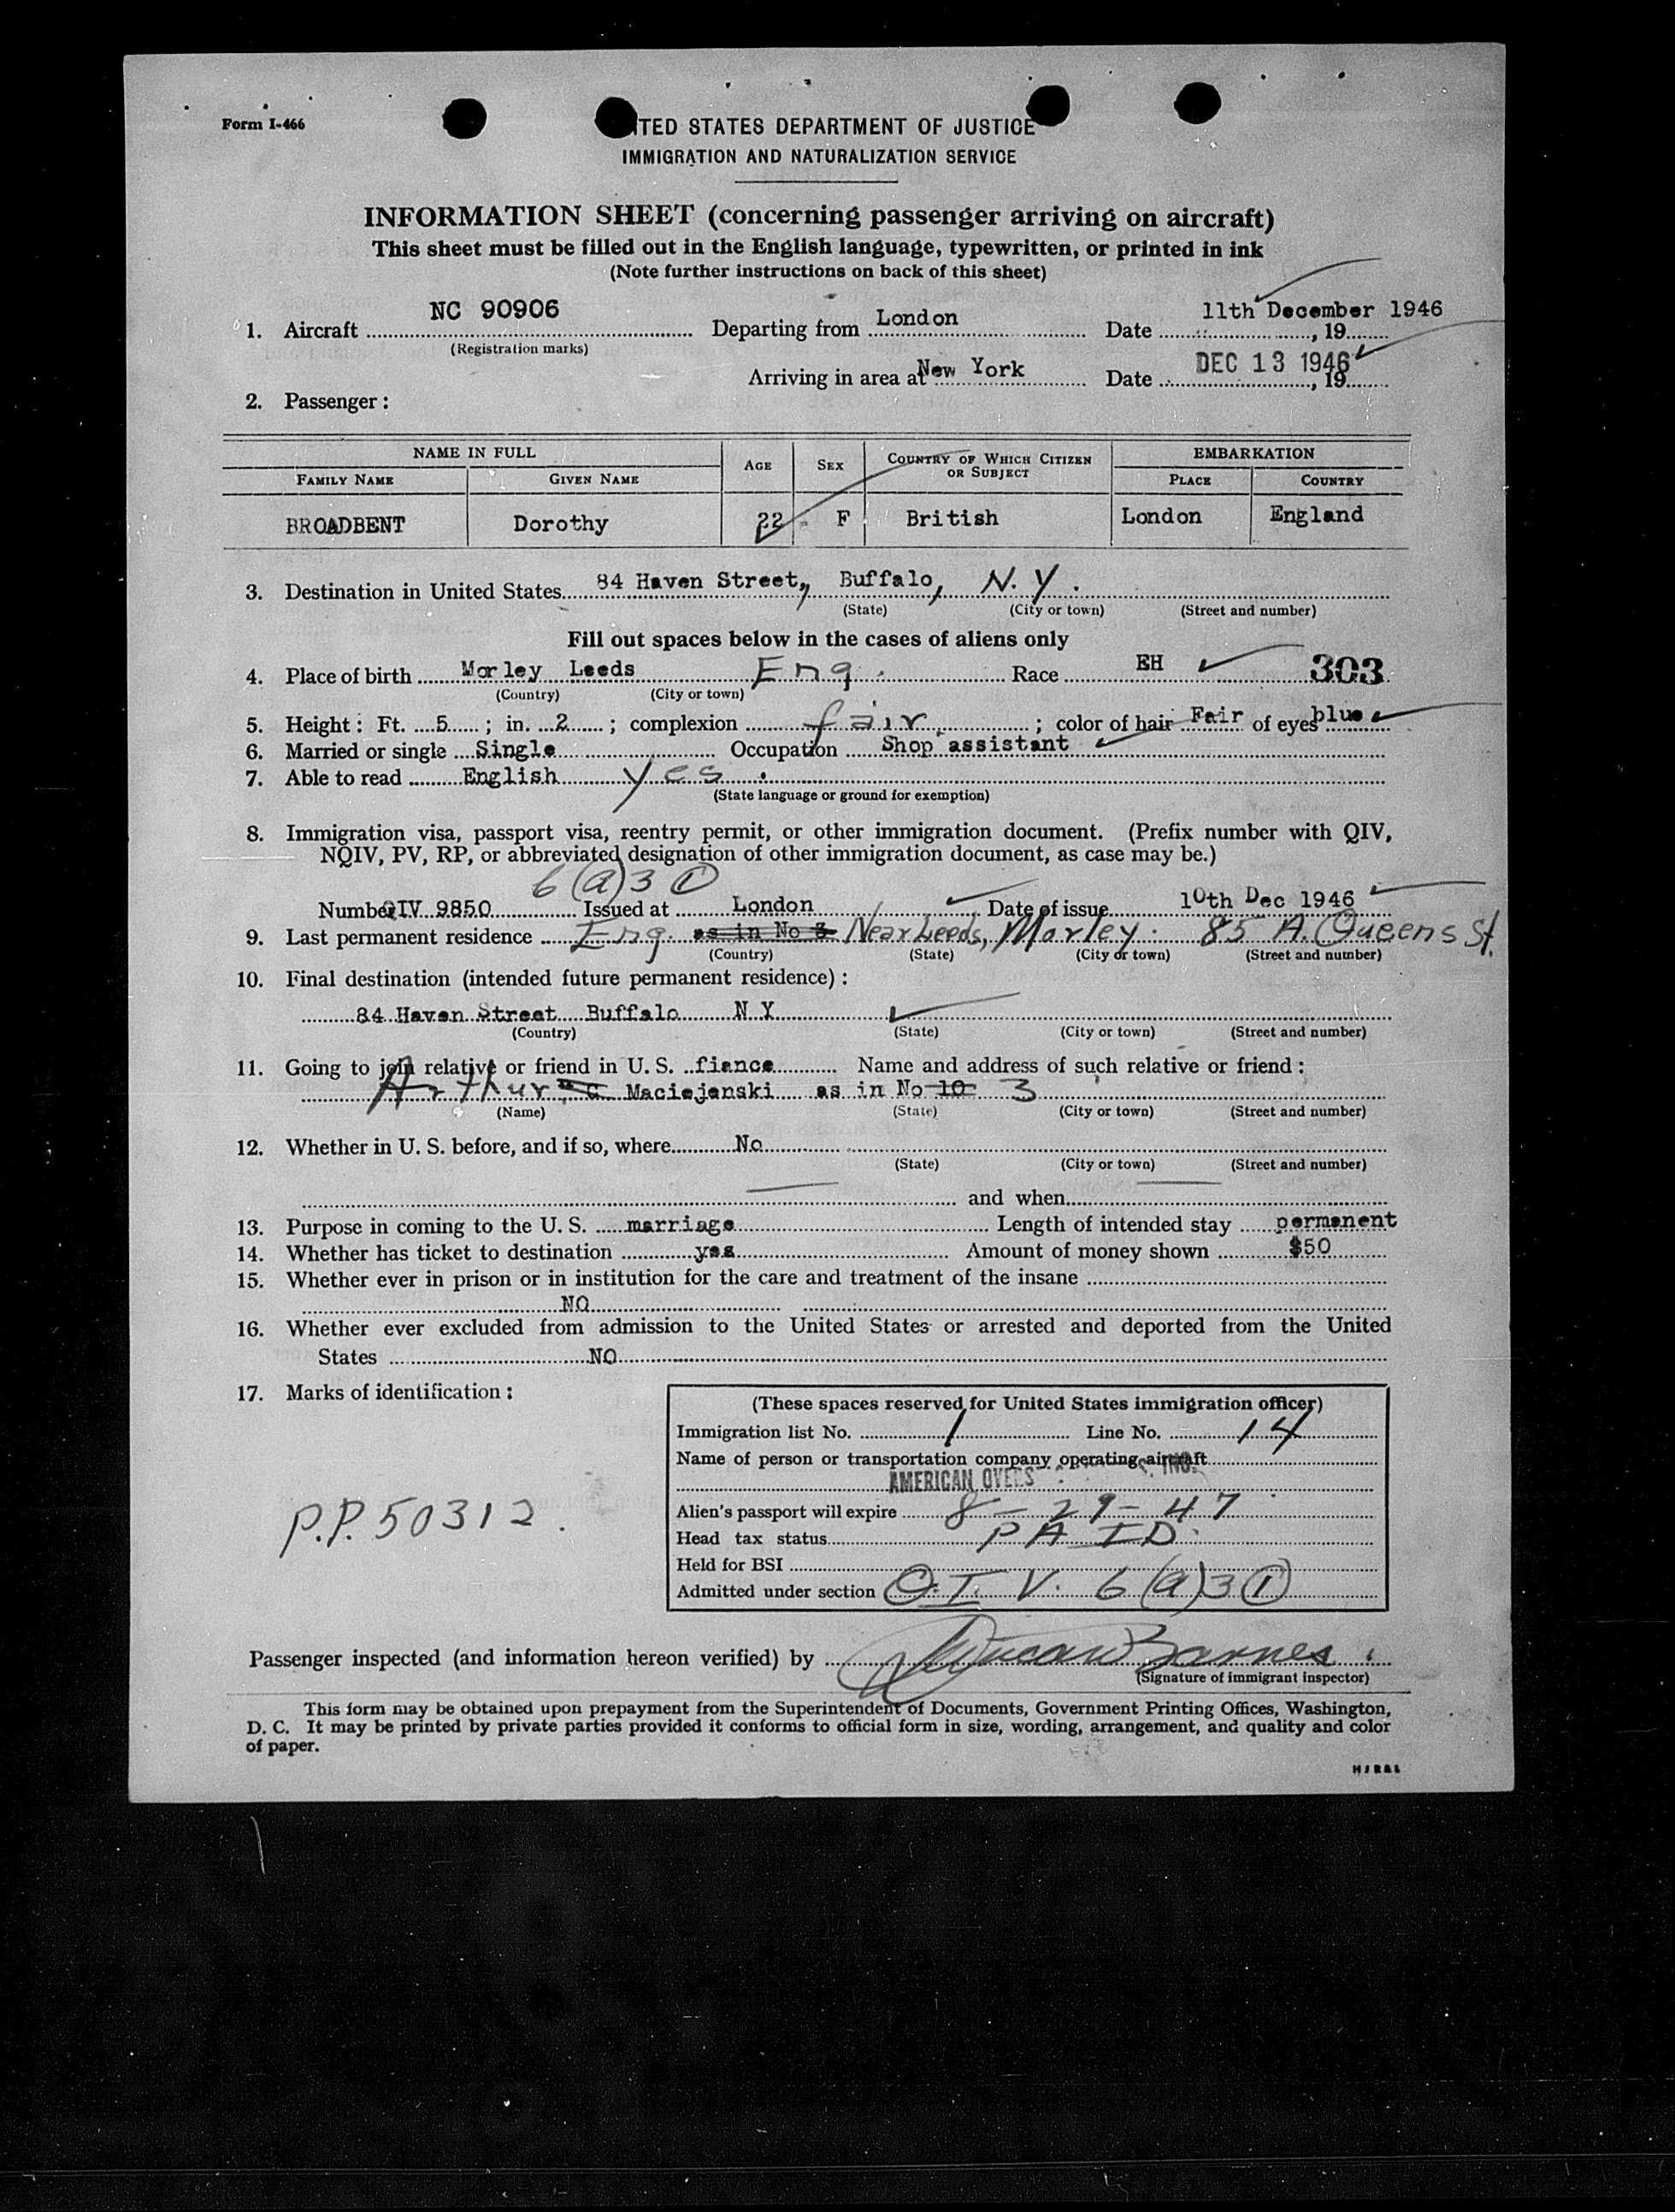 Form I-466
TED STATES DEPARTMENT OF JUSTICE
IMMIGRATION AND NATURALIZATION SERVICE
INFORMATION SHEET (concerning passenger arriving on aircraft)
This sheet must be filled out in the English language, typewritten, or printed in ink
(Note further instructions on back of this sheet)
1. Aircraft NC 90906 Departing from London Date 11th December 1946, 19
(Registration marks)
Arriving in area at New York Date DEC 13 1946, 19
2. Passenger:
NAME IN FULL AGE SEX COUNTRY OF WHICH CITIZEN OR SUBJECT EMBARKATION
FAMILY NAME GIVEN NAME PLACE COUNTRY
BROADBENT Dorothy 22 F British London England
3. Destination in United States 84 Haven Street, Buffalo, N.Y.
(State) (City or town) (Street and number)
Fill out spaces below in the cases of aliens only
4. Place of birth Morley Leeds Eng. Race EH 303
(Country) (City or town)
5. Height: Ft. 5; in. 2; complexion fair; color of hair Fair of eyes blue
6. Married or single Single Occupation Shop assistant
7. Able to read English yes.
(State language or ground for exemption)
8. Immigration visa, passport visa, reentry permit, or other immigration document. (Prefix number with QIV,
NQIV, PV, RP, or abbreviated designation of other immigration document, as case may be.)
6(a)3 (1)
Number QIV 9850 Issued at London Date of issue 10th Dec 1946
9. Last permanent residence Eng. as in No 3 Near Leeds, Morley. 85 A. Queens St.
(Country) (State) (City or town) (Street and number)
10. Final destination (intended future permanent residence):
84 Haven Street Buffalo N Y
(Country) (State) (City or town) (Street and number)
11. Going to join relative or friend in U. S. fiance Name and address of such relative or friend:
Arthur Maciejenski as in No 10 3
(Name) (State) (City or town) (Street and number)
12. Whether in U. S. before, and if so, where No
(State) (City or town) (Street and number)
and when
13. Purpose in coming to the U. S. marriage Length of intended stay permanent
14. Whether has ticket to destination yes Amount of money shown $50
15. Whether ever in prison or in institution for the care and treatment of the insane
NO
16. Whether ever excluded from admission to the United States or arrested and deported from the United
States NO
17. Marks of identification:
P.P. 50312.
(These spaces reserved for United States immigration officer)
Immigration list No. 1 Line No. 14
Name of person or transportation company operating aircraft
AMERICAN INC.
Alien's passport will expire 8-29-47
Head tax status PAID.
Held for BSI
Admitted under section Q.I.V. 6(a)3 (1)
Passenger inspected (and information hereon verified) by Barnes
(Signature of immigrant inspector)
This form may be obtained upon prepayment from the Superintendent of Documents, Government Printing Offices, Washington,
D. C. It may be printed by private parties provided it conforms to official form in size, wording, arrangement, and quality and color
of paper.